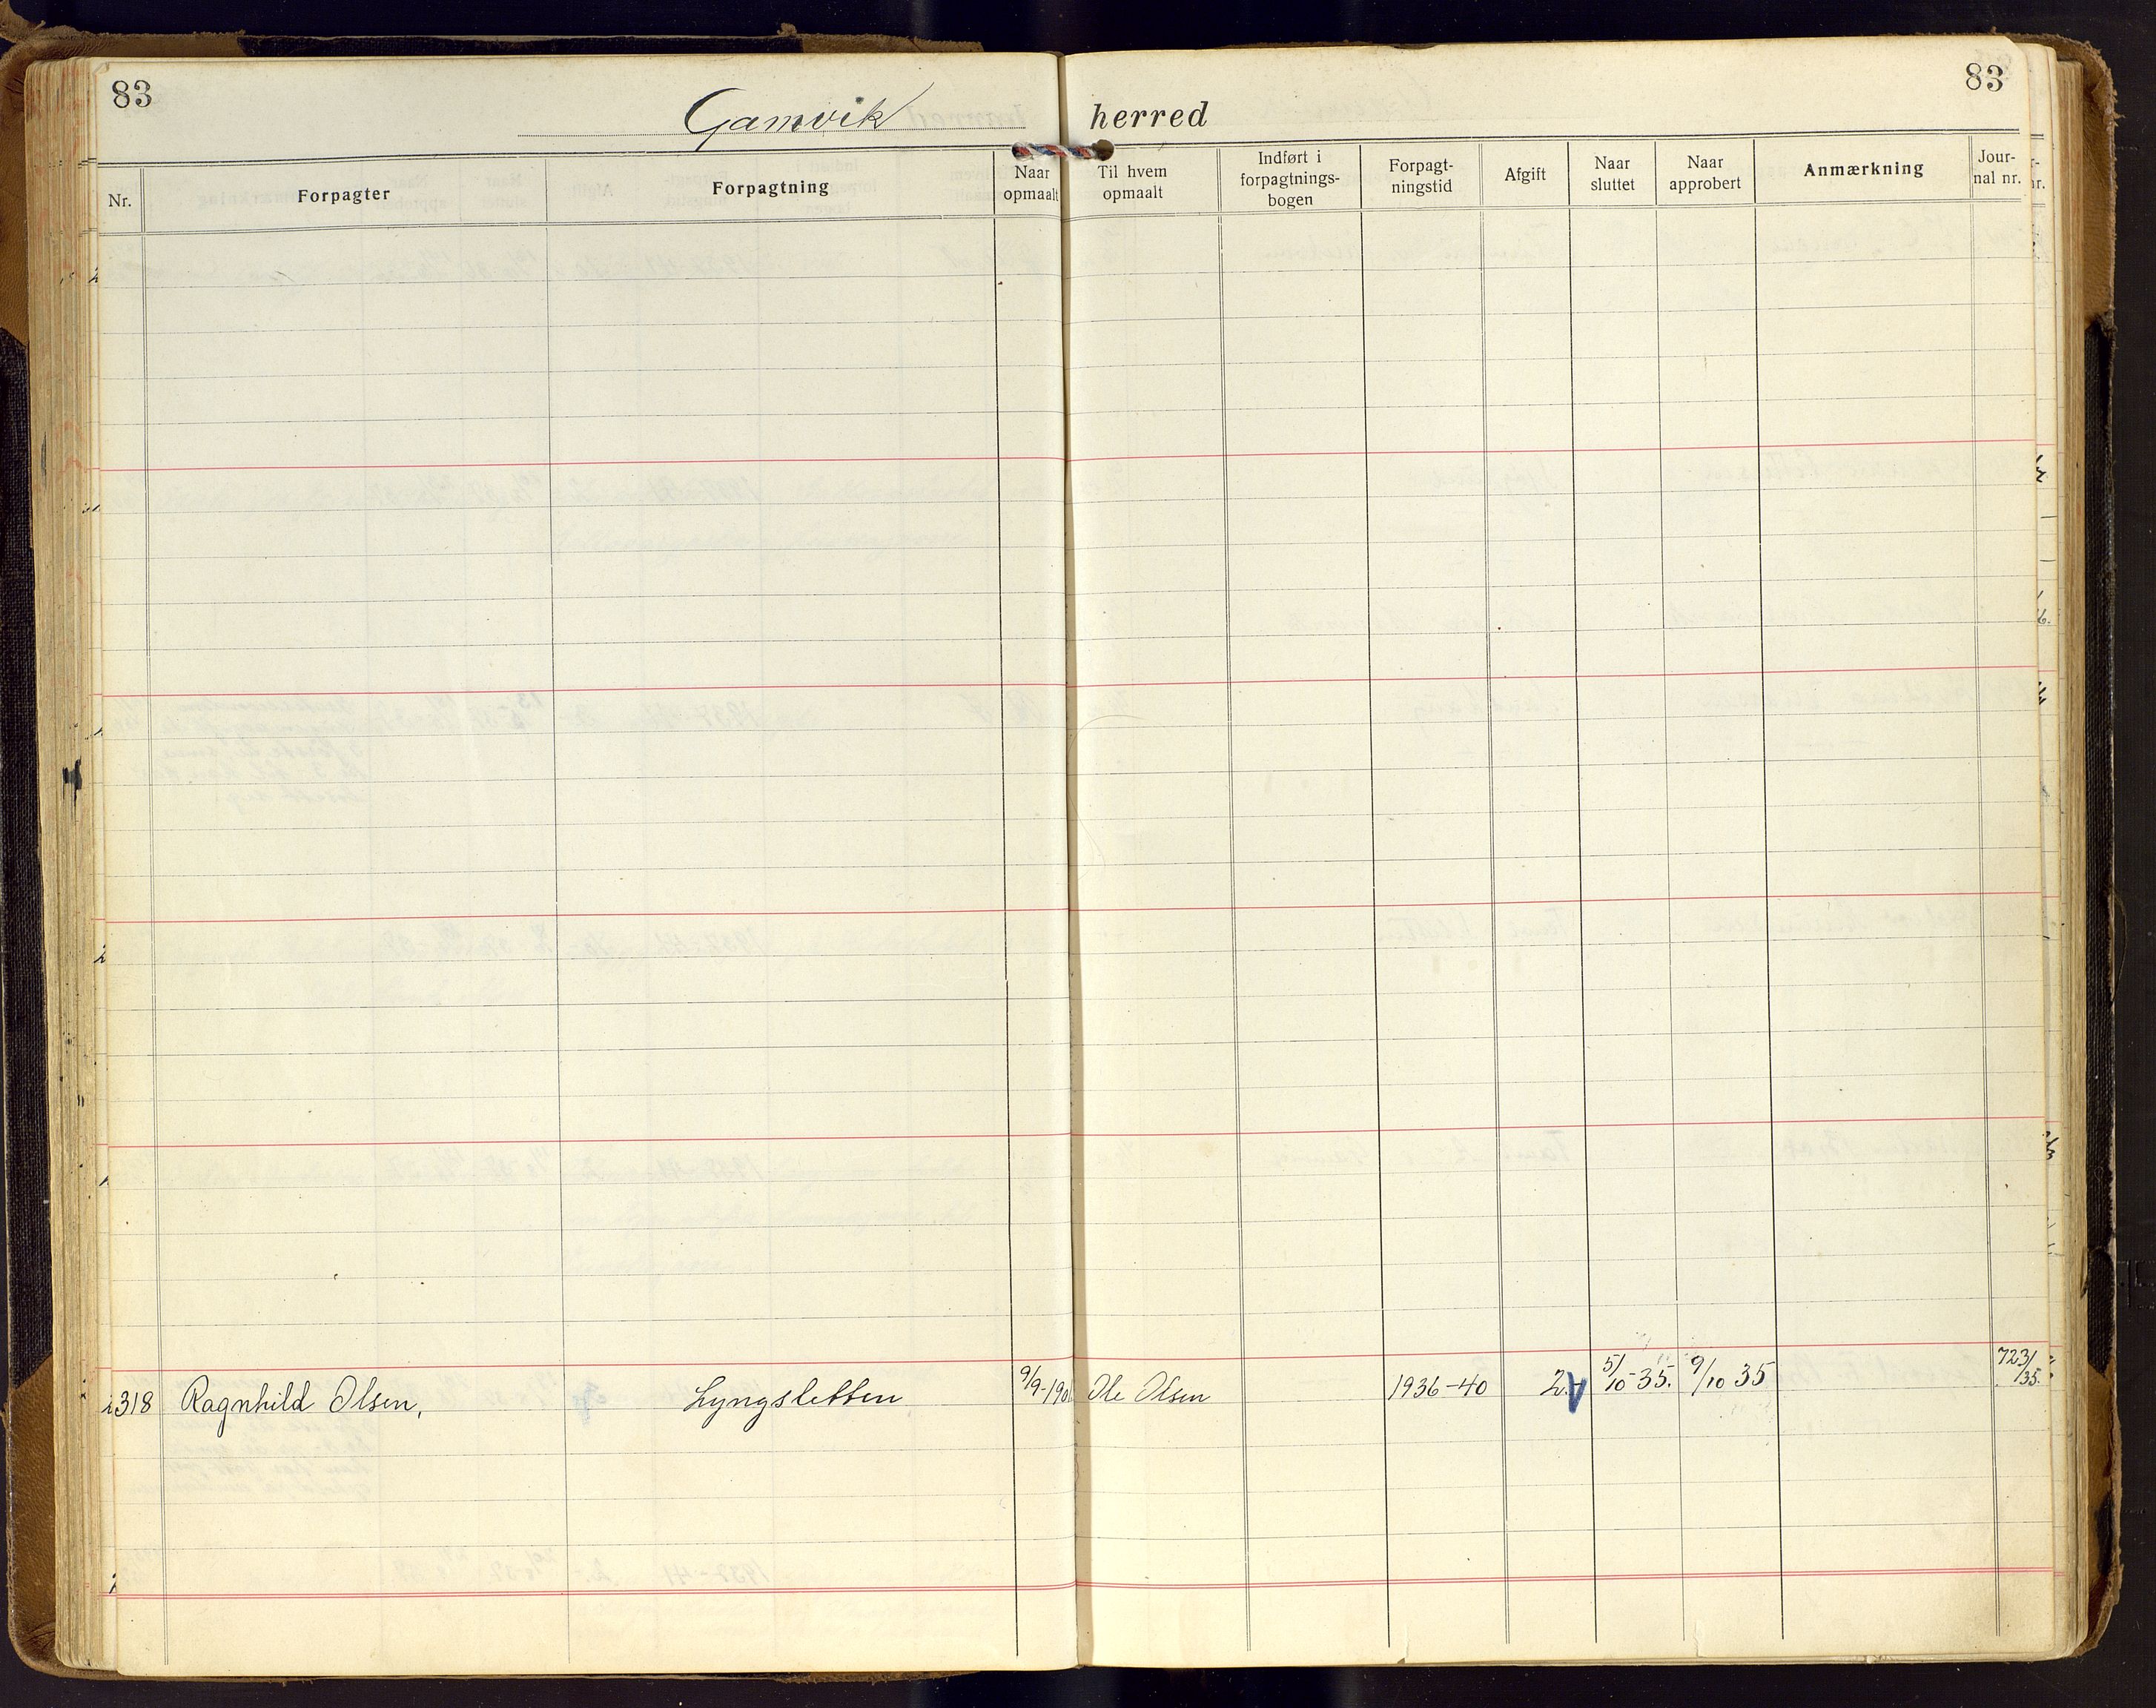 83
Gamvik herred
83
Nr.
Forpagter
Forpagtning
Naar opmaalt
Til hvem opmaalt
Indført i forpagtnings- bogen
Forpagt- ningstid
Afgift
Naar sluttet
Naar approbert
Anmærkning
Jour- nal nr.
318 Ragnhild Olsen, Lyngsletten 9/9-190 Ole Olsen 1936-40 2.- 5/10-35. 9/10 35 723/35.